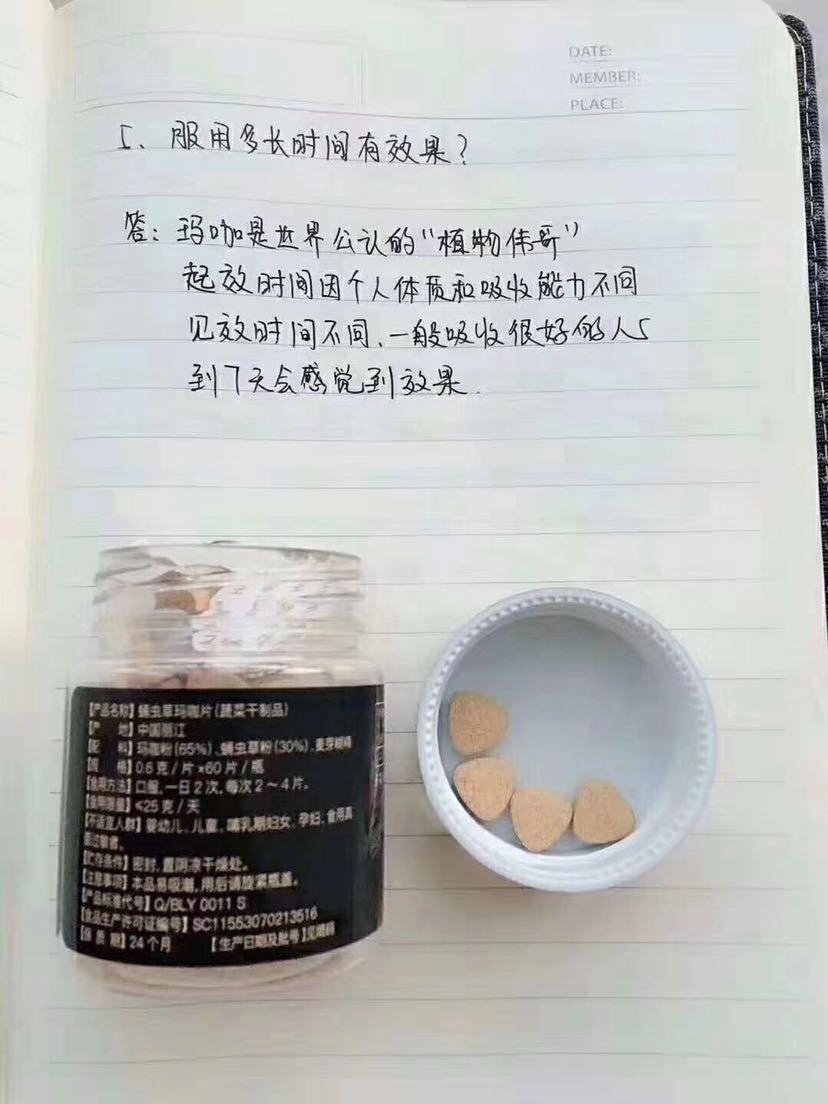 DATE:
MEMBER:
PLACE:
5、服用多长时间有效果？
答：玛咖是世界公认的“植物伟哥”
起效时间因个人体质和吸收能力不同
见效时间不同、一般吸收很好的人5
到7天会感觉到效果.
【产品名称】蛹虫草玛咖片(蔬菜干制品)
【产 地】中国丽江
【配 料】玛咖粉(65%)、蛹虫草粉(30%)、麦芽糊精
【规 格】0.6克/片×60片/瓶
【食用方法】口服,一日2次,每次2～4片。
【食用限量】≤25克/天
【不适宜人群】婴幼儿、儿童、哺乳期妇女、孕妇、食用真
菌过敏者。
【贮存条件】密封,置阴凉干燥处。
【注意事项】本品易吸潮,用后请旋紧瓶盖。
【产品标准代号】Q/BLY 0011 S
【食品生产许可证编号】SC11553070213516
【保 质 期】24个月 【生产日期及批号】见喷码